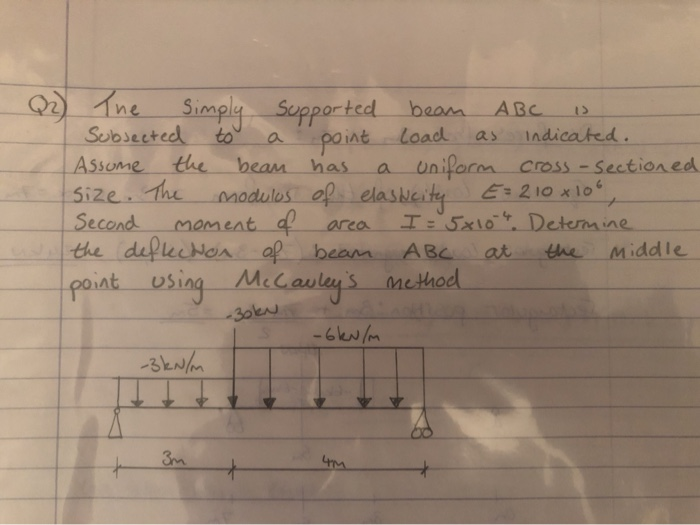 Q2) The Simply Supported beam ABC is
Subsected to a point load as indicated.
Assume the beam has a uniform cross-sectioned
size. The modulus of elasticity E = 210 x10⁶,
Second moment of area I = 5x10⁻⁴. Determine
the deflection of beam ABC at the middle
point using McCauley's method
-30kN
-6kN/m
-3kN/m
3m 4m